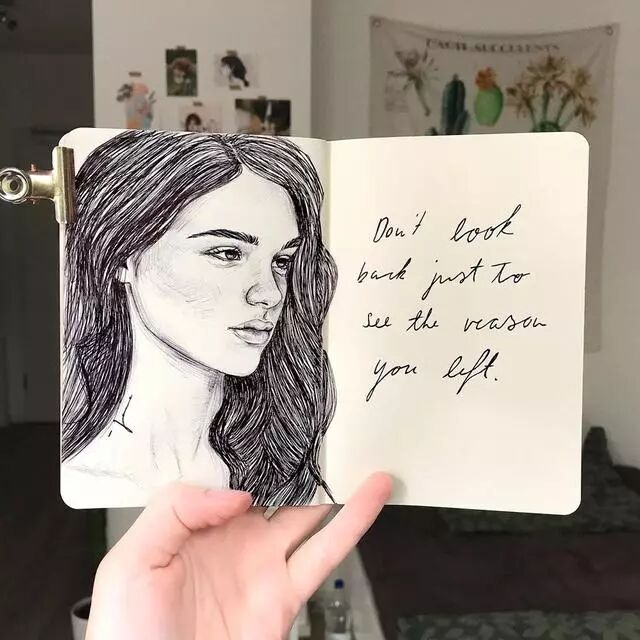 CACTI & SUCCULENTS
Don't look
back just to
see the reason
you left.